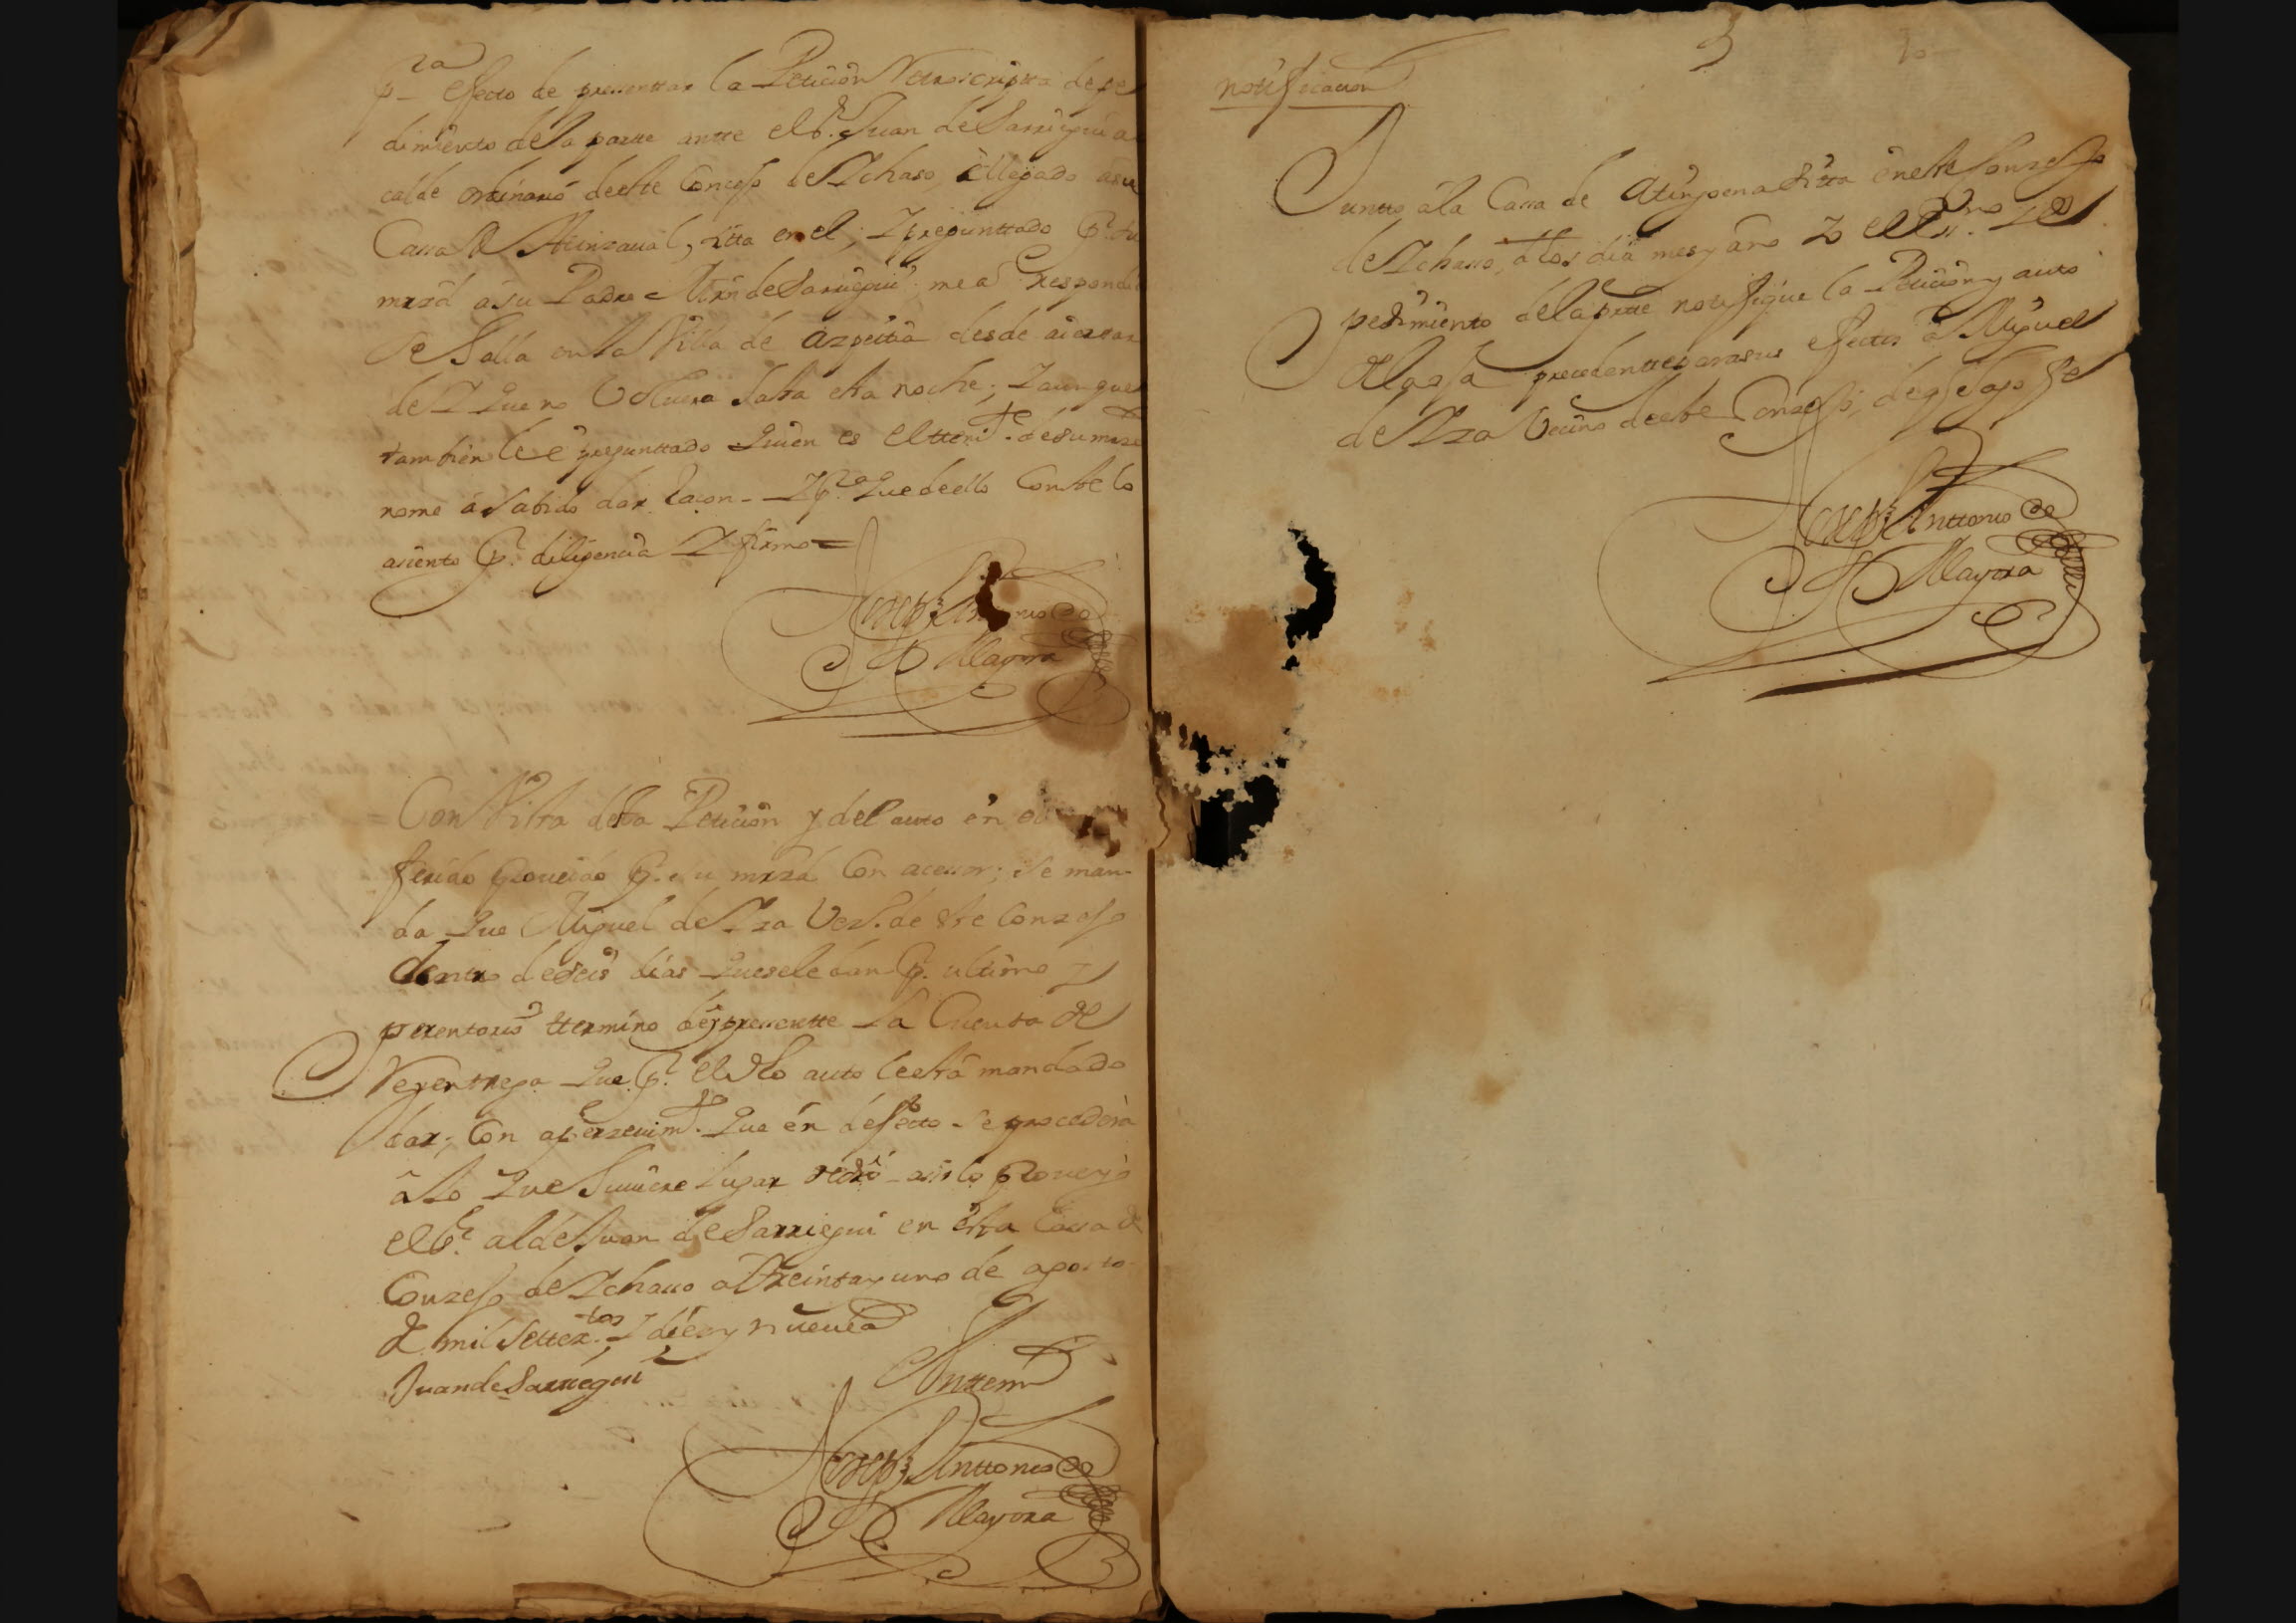 p.ra efecto de presenttar la Petición Retroscriptta de pe
dimiento dela partte antte el s.r Juan de Sarriegui al
calde ordinario deeste Concejo de Ichaso, e llegado asu
Cassa de Atinzaval, sitta en el; I preguntado p.r su
mrzd a su Padre Mrn de Sarriegui me á respondido
se halla en la Villa de Azpeitia desde aier
de I Que no Volvera hasta esta noche; I aunque
tambien le é preguntado Quien es el tteni.te de su mrzd
nome á sabido dar Raçon - I p.ra Que deello Conste lo
asiento p.r diligencia I firmo =
Joseph Anttonio de
Mayora
Con Vista desta Petición y del auto en el
ferido proueido p.r su mrzd Con acessor; se man-
da Que Miguel de Iza Vez.o de este Conzejo
dentro de seis dias Quesele dan p.r ultimo I
perentorio ttermino de y pressentte La Cuenta de
Reentrega Que p.r el dho auto leesta mandado
dar; Con aperzeuim.to Que en defecto se procederà
a lo Que huuiere lugar dedrõ - assi lo proueyó
el S.r alcde Juan de Sarriegui en esta Cassa de
Conzejo de Ichasso a Treinta y uno de agosto
de mil settez.tos I diez y nueue
Juan de Sarriegui
Anttemi
Joseph Anttonio de
Mayora
3
notificacion
Juntto àla Cassa de Atinpena sitta en este Conzejo
de Ichasso, a los dia mes y año Yo el Ess.no I de
pedimiento dela partte notifiqué la Petición y auto
dela oja precedentte para sus efectos à Miguel
de Iza Vecino deeste Conzejo, de q doyo fe
Joseph Anttonio de
Mayora